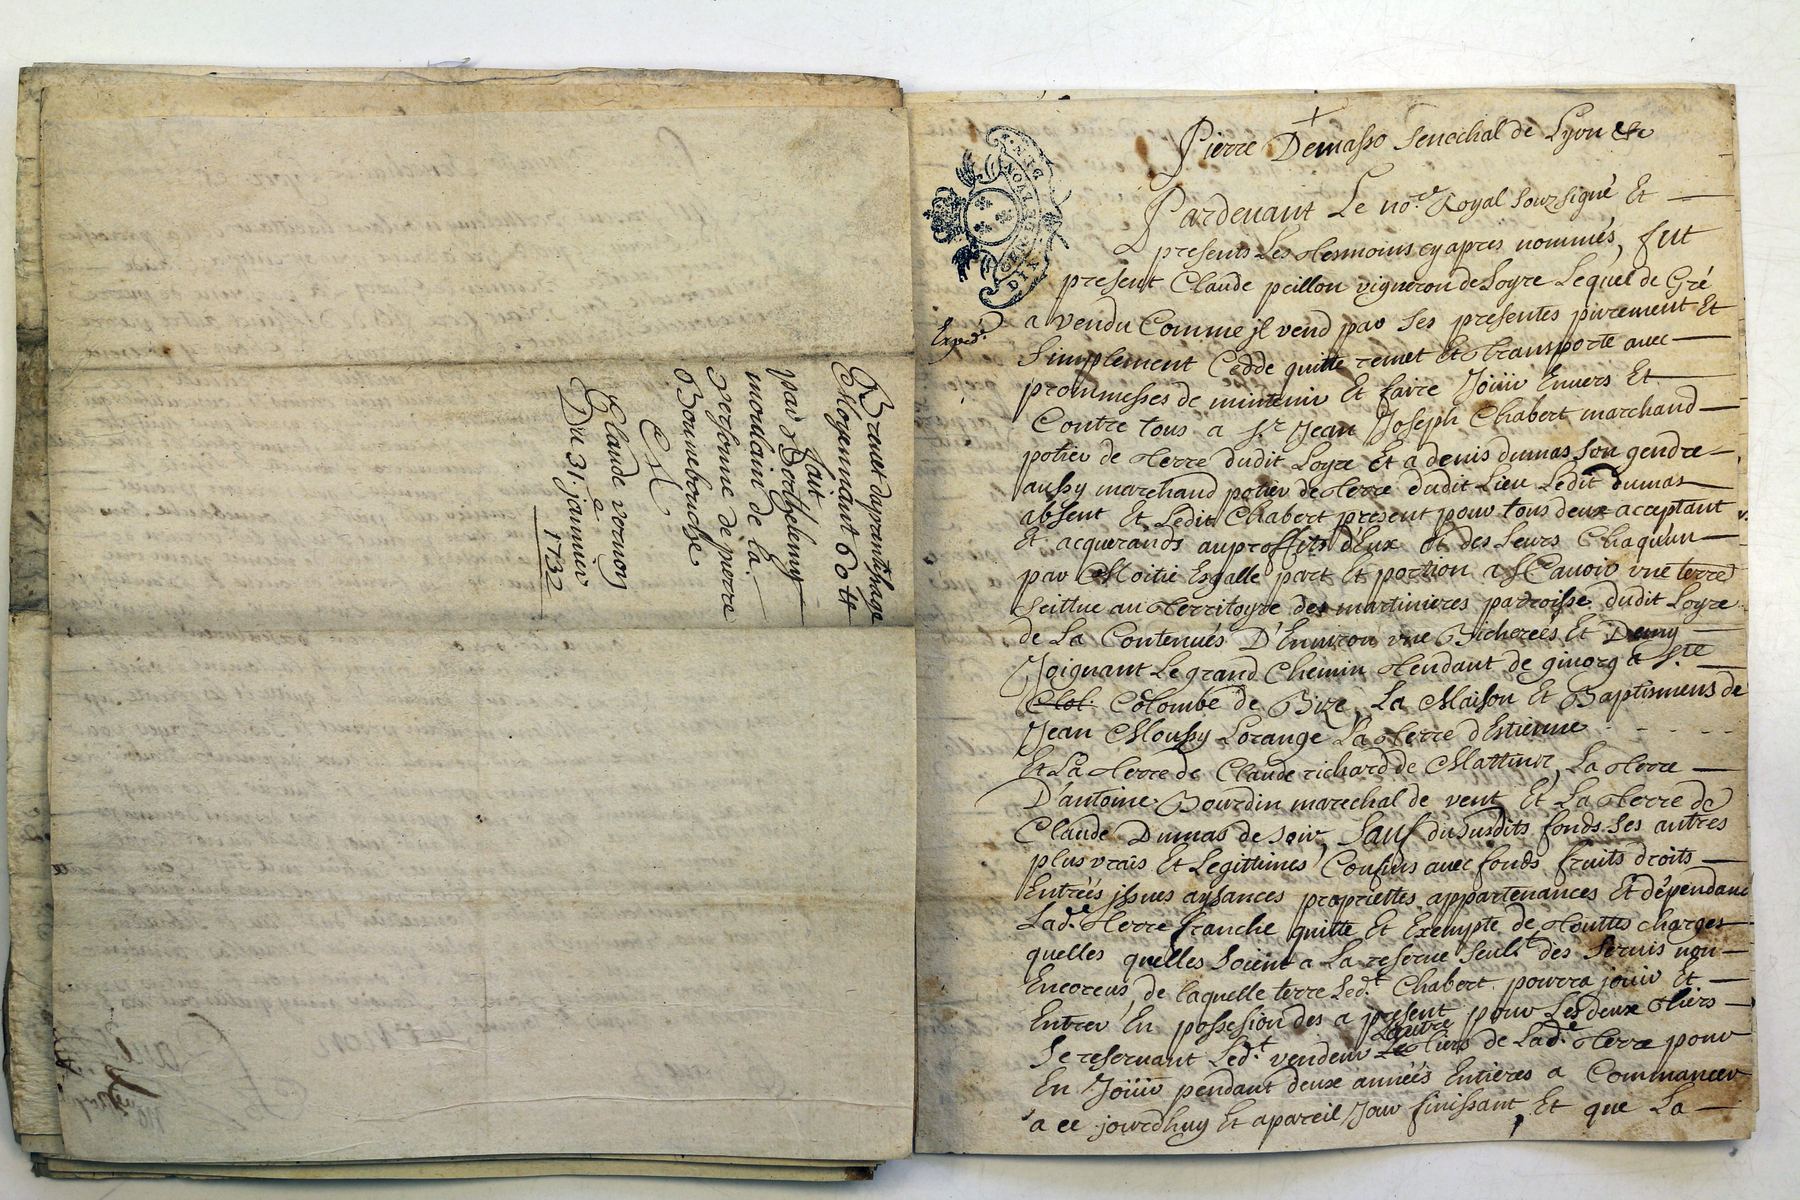 Brevet daprentissage
Moyennant 60 ₶
fait
par Barthelemy
mondain de la
personne de pierre
Bonnebouche
Et
Claude vernon
a
Du 31. janvier
1732
Pierre Demasso Senechal de Lyon &c
Pardevant Le no.e Royal Souzsigné Et
presents Les tesmoins cy apres nommés, fut
present Claude peillon vigneron de Loyre Lequel de Gré
Exped.é
a vendu Comme jl vend par Ses presentes purement Et
Simplement Cedde quitte remet Et transporte avec
prommesses de mintenir Et faire Joüir Envers Et
Contre tous a S.r Jean Joseph Chabert marchand
potier de terre dudit Loyre Et a denis dumas Son gendre
aussy marchand potier de terre dudit Lieu Ledit dumas
absent Et Ledit Chabert present pour tous deux acceptant
Et acquerands auproffits d'Eux Et des Leurs Chaqu'un
par Moitié Esgalle part Et portion a SCavoir vne terre
Scittue au territoyre des martinieres parroisse dudit Loyre
de La Contenués D'Environ vne Bicherées Et Demy
Joignant Le grand Chemin tendant de givorg a S.te
Clol. Colombe de Bize, La Maison Et Baptismens de
Jean Moussy Lorange La terre d'Estienne
Et La terre de Claude richard de Mattinir, La terre
D'antoine Bourdin marechal de vent Et La terre de
Claude Dumas de Soir, Sauf du Susdits fonds Ses autres
plus vrais Et Legittimes Confins avec fonds, fruits droits
Entrées jssues aysances proprietes appartenances Et dépendanc
Lad.e terre franche quitte Et Exempte de touttes charges
quelles quelles Soient a La reserve Seul.t des Servis non
Encoreus, de laquelle terre Led.t Chabert pourra joüir Et
Entrer En possesion des a present pour Les deux tiers
Se reservant Led.t vendeur Le Lautre tiers de Lad.e terre pour
En Joüir pendant deux années Entieres a Commancer
a ce jourdhuy Et apareil Jour finissant, Et que La